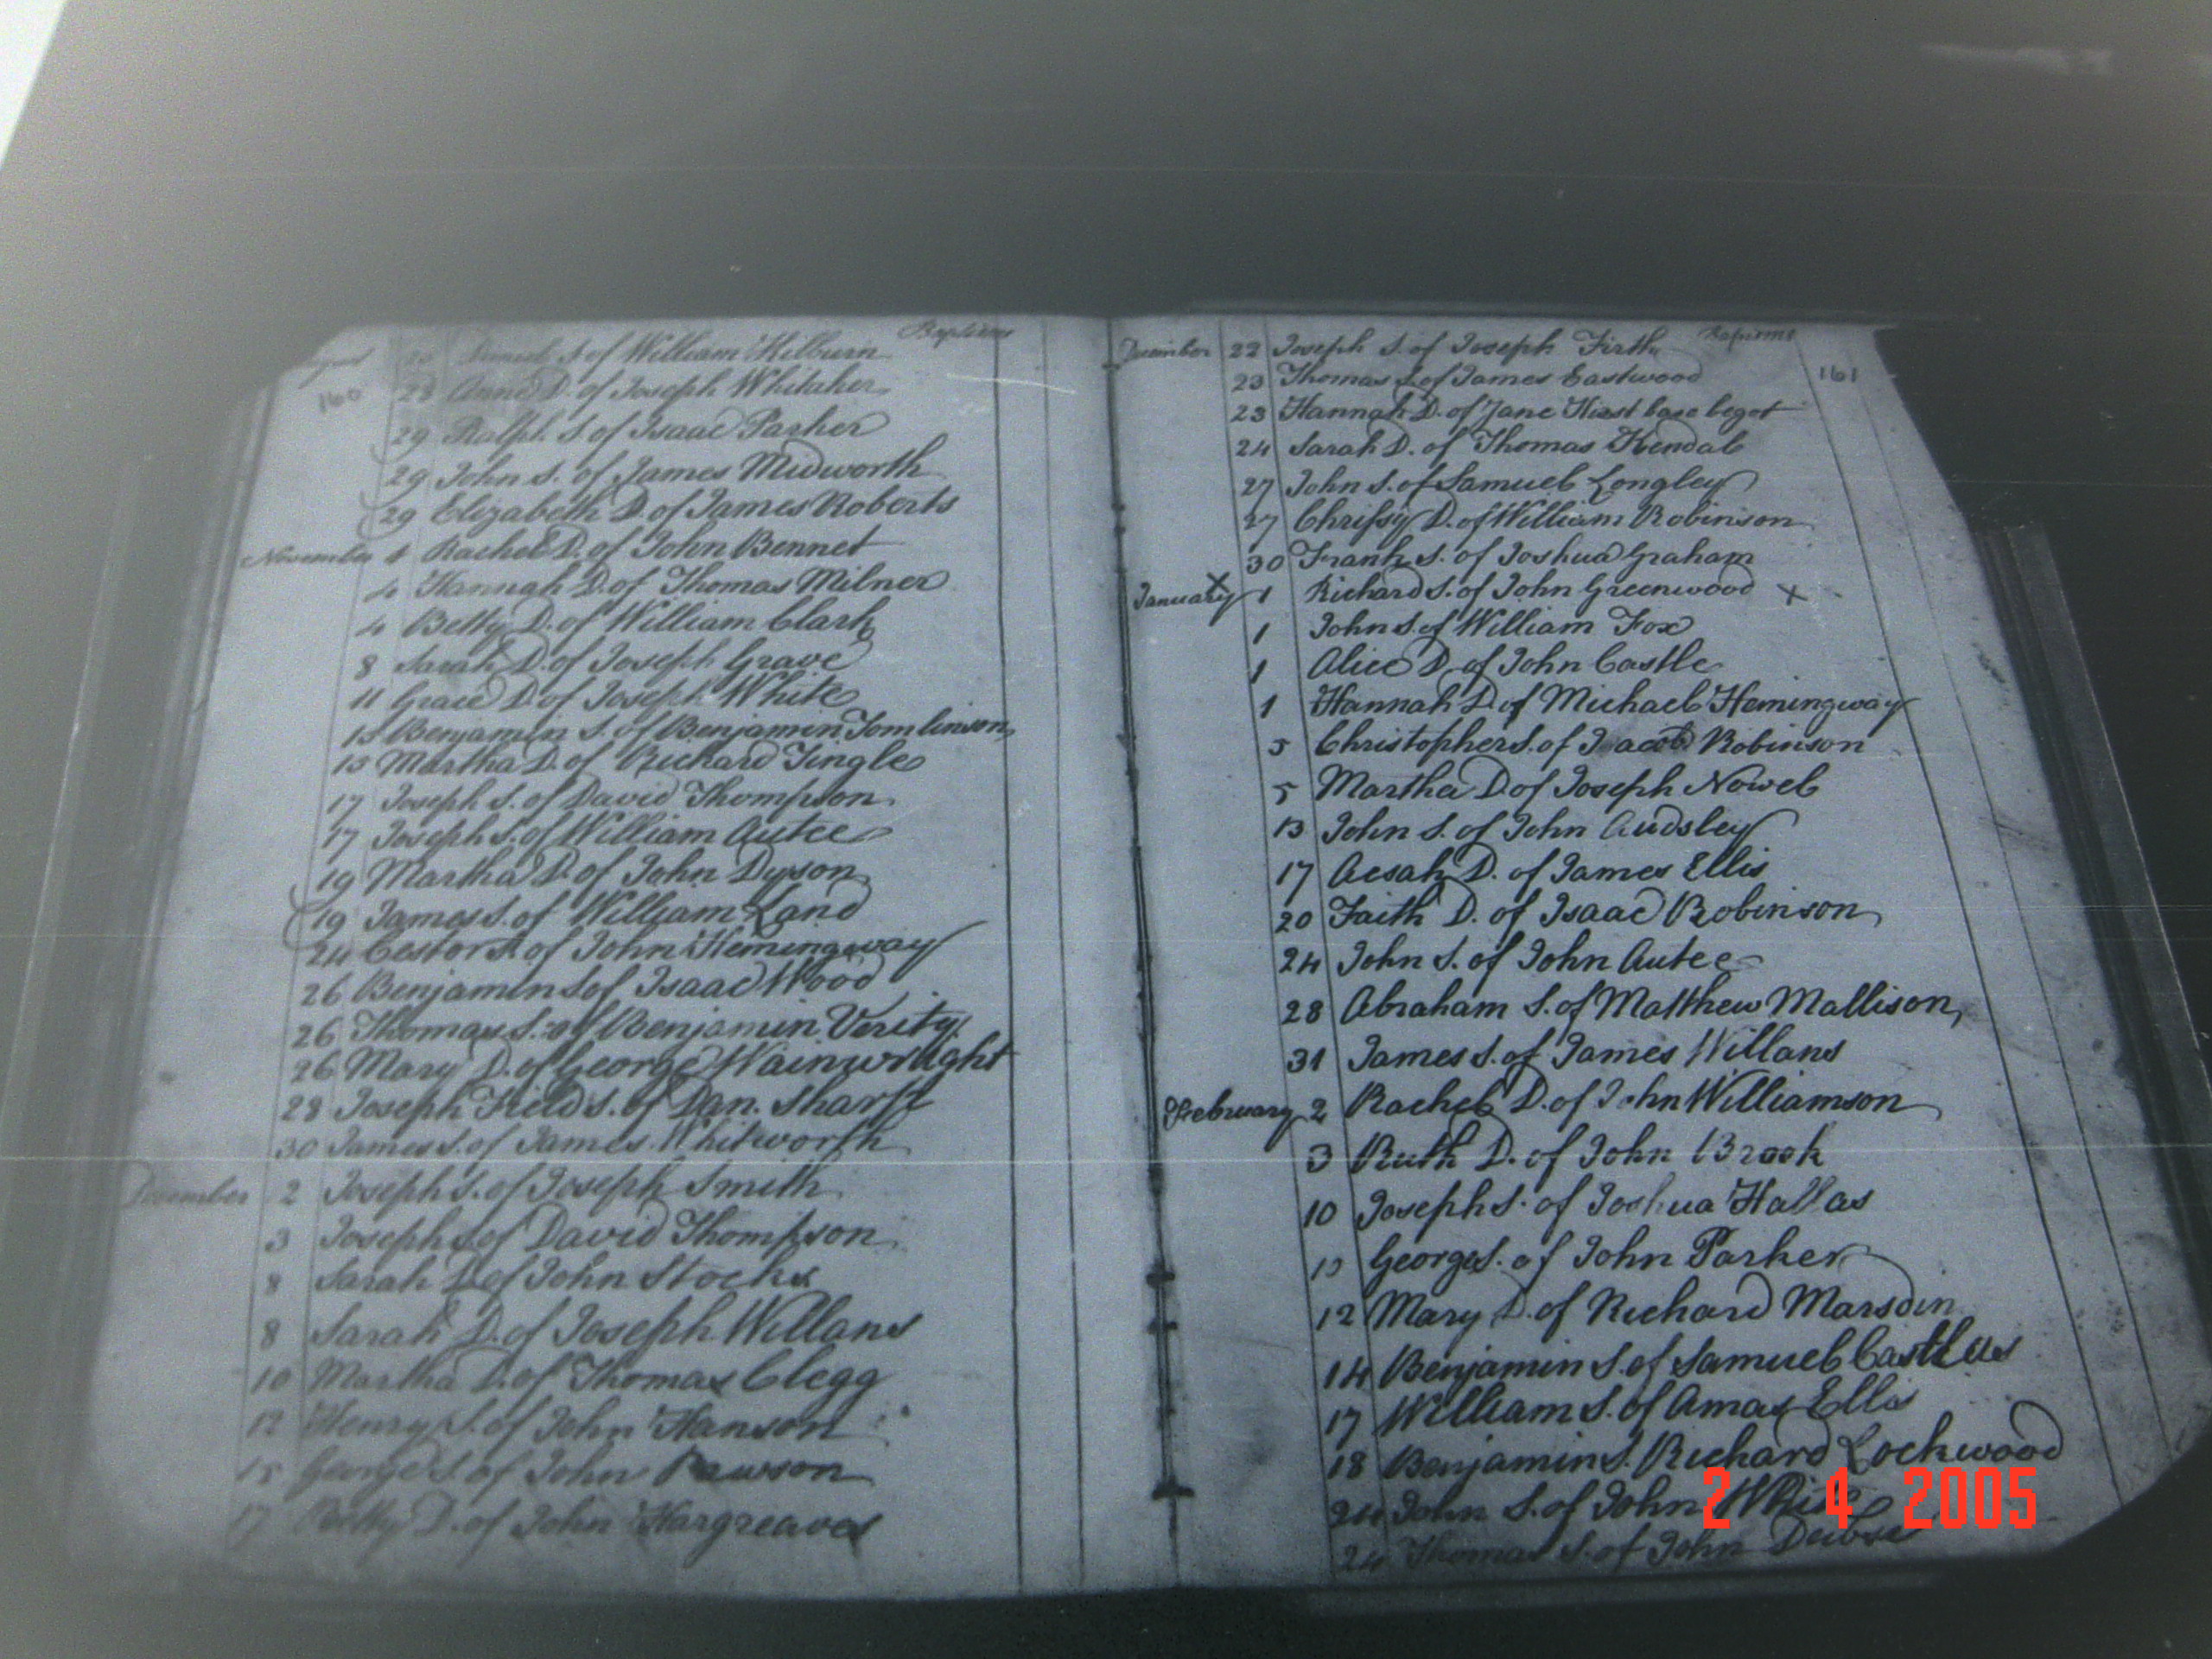 Baptisms
160
S. of William Kilburn
28 Anne D. of Joseph Whitaker
29 Ralph S. of Isaac Parker
29 John S. of James Midworth
29 Elizabeth D. of James Roberts
November 1 Rachel D. of John Bennet
4 Hannah D. of Thomas Milner
4 Betty D. of William Clark
8 Sarah D. of Joseph Grave
11 Grace D. of Joseph White
15 Benjamin S. of Benjamin Tomlinson
15 Martha D. of Richard Tingle
17 Joseph S. of David Thompson
17 Joseph S. of William Autee
19 Martha D. of John Dyson
19 James S. of William Land
24 Cestor S. of John Hemingway
26 Benjamin S of Isaac Wood
26 Thomas S. of Benjamin Verity
26 Mary D. of George Wainwright
28 Joseph Field S. of Dan. Sharp
30 James S. of James Whitworth
December 2 Joseph S. of Joseph Smith
3 Joseph S of David Thompson
8 Sarah D. of John Stocks
8 Sarah D. of Joseph Willans
10 Martha D. of Thomas Clegg
12 Henry S. of John Hanson
15 George S. of John Rawson
17 Betty D. of John Hargreaves
Baptisms
161
December 22 Joseph S. of Joseph Firth
23 Thomas S. of James Eastwood
23 Hannah D. of Jane Hirst base begot
24 Sarah D. of Thomas Kendal
27 John S. of Samuel Longley
27 Chrissy D. of William Robinson
30 Frank S. of Joshua Graham
January 1 Richard S. of John Greenwood x
1 John S. of William Fox
1 Alice D. of John Castle
1 Hannah D of Michael Hemingway
5 Christopher S. of Jacob Robinson
5 Martha D of Joseph Nowel
13 John S. of John Audsley
17 Aesah D. of James Ellis
20 Faith D. of Isaac Robinson
24 John S. of John Autee
28 Abraham S. of Matthew Mallison
31 James S. of James Willans
February 2 Rachel D. of John Williamson
3 Ruth D. of John Brook
10 Joseph S. of Joshua Hallas
George S. of John Parker
12 Mary D. of Richard Marsden
14 Benjamin S. of Samuel
17 William S. of Amas Ellis
18 Benjamin S. Richard Lockwood
24 John S. of John White
24 Thomas S. of John
2 4 2005